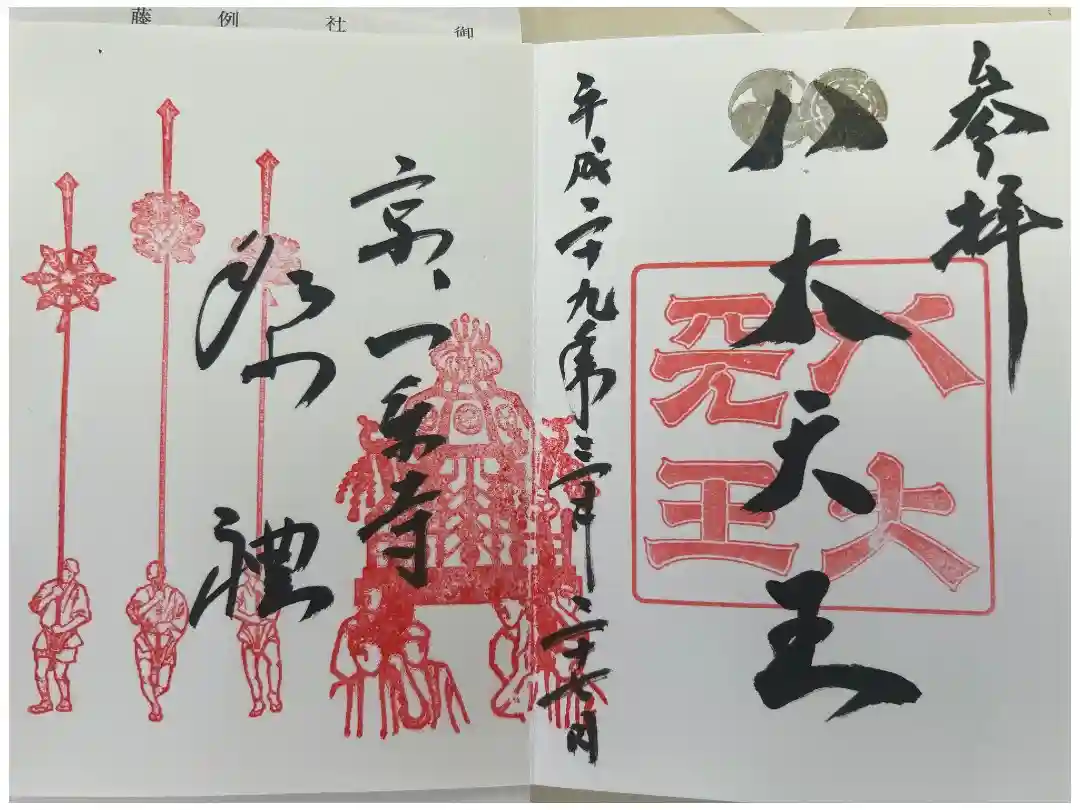 参拝
八大天王
八大
天王
平成二十九年三月二十七日
京一乗寺
祭禮
御
社
例
藤